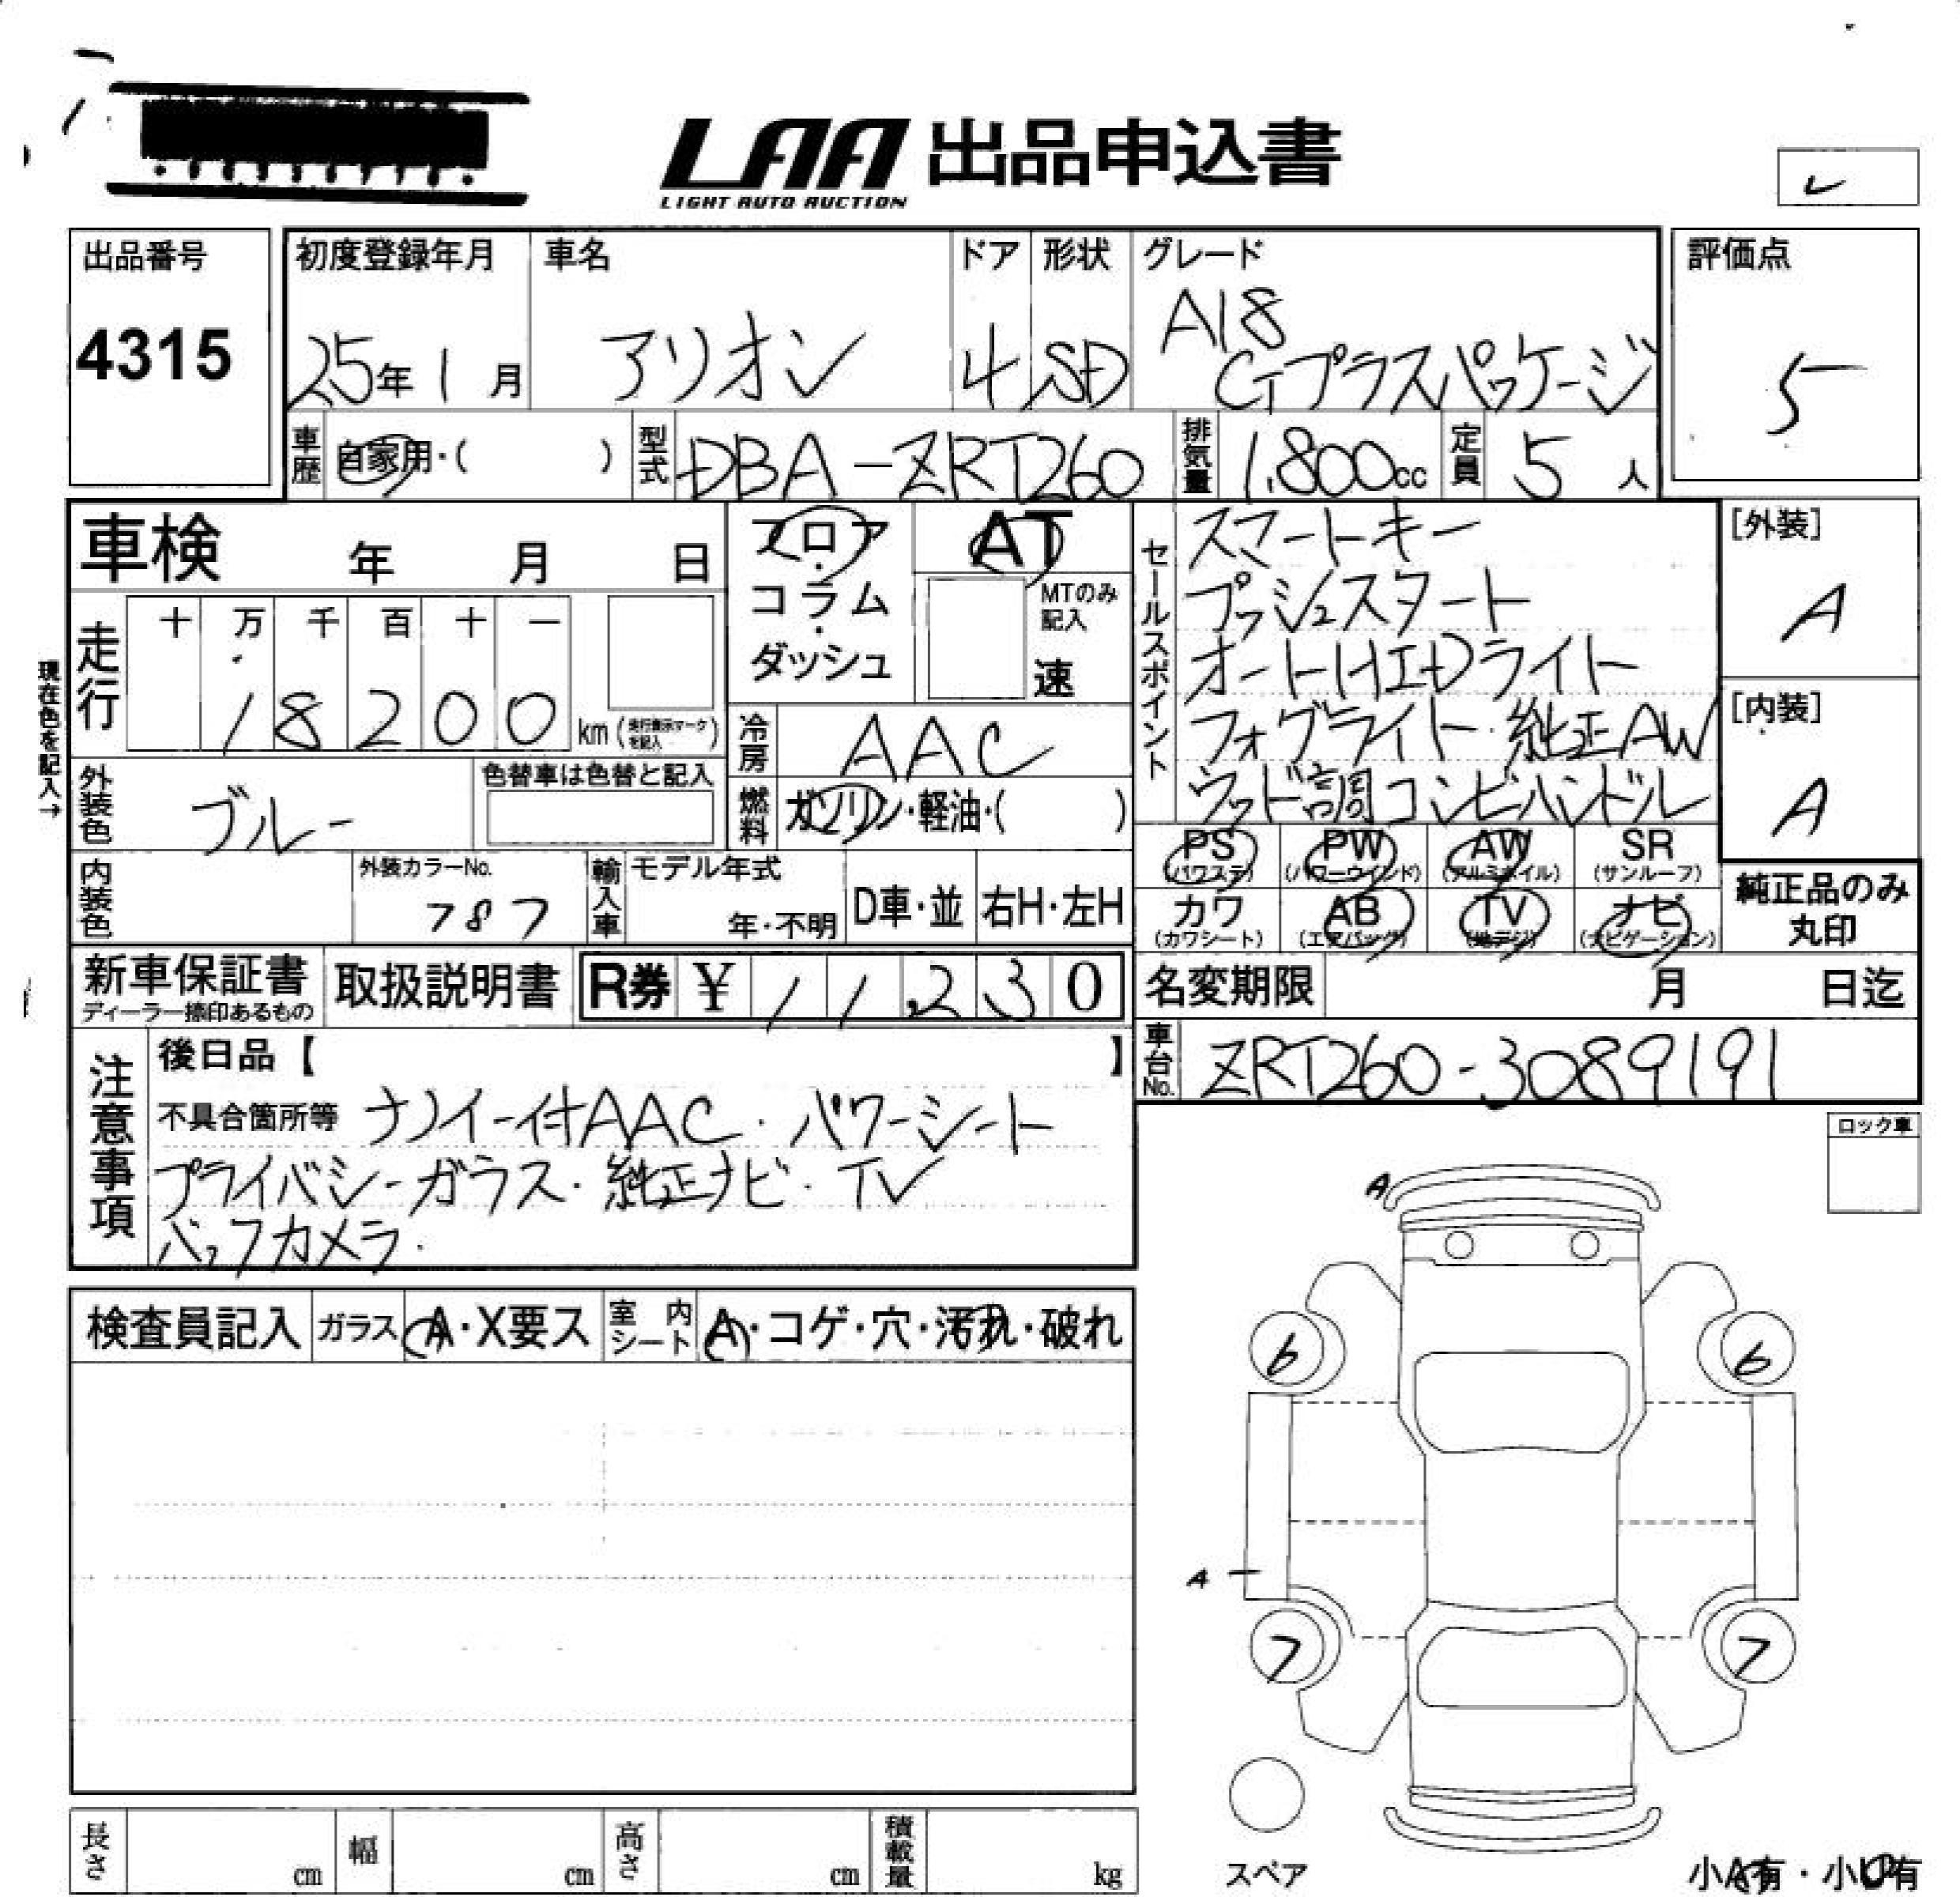 LAA 出品申込書
LIGHT AUTO AUCTION
レ
出品番号
4315
初度登録年月
25年1月
車名
アリオン
ドア
4
形状
SD
グレード
A18
Gプラスパッケージ
評価点
5
車歴 自家用・( )
型式 DBA-ZRT260
排気量 1,800cc
定員 5人
車検 年 月 日
フロア・コラム・ダッシュ
AT
MTのみ記入
速
セールスポイント
スマートキー
プッシュスタート
オートHIDライト
フォグライト・純正AW
ウッド調コンビハンドル
[外装]
A
[内装]
A
現在色を記入→
走行
十 万 千 百 十 一
18200
km (走行表示マークを記入)
冷房 AAC
外装色 ブルー
色替車は色替と記入
燃料 ガソリン・軽油・( )
PS (パワステ)
PW (パワーウィンド)
AW (アルミホイル)
SR (サンルーフ)
カワ (カワシート)
AB (エアバッグ)
TV (地デジ)
ナビ (ナビゲーション)
純正品のみ
丸印
内装色
外装カラーNo.
787
輸入車
モデル年式
年・不明
D車・並
右H・左H
新車保証書
ディーラー捺印あるもの
取扱説明書
R券 ¥11,230
名変期限 月 日迄
車台No. ZRT260-3089191
注意事項
後日品【 】
不具合箇所等 ナノイー付AAC・パワーシート
プライバシーガラス・純正ナビ・TV
バックカメラ・
ロック車
検査員記入
ガラス A・X要ス
室内シート A・コゲ・穴・汚れ・破れ
A
6
6
A
7
7
スペア
長さ cm
幅 cm
高さ cm
積載量 kg
小A有・小U有